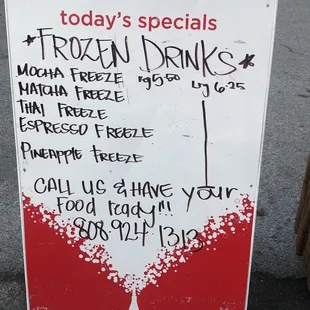 today's specials
*FROZEN DRINKS*
MOCHA FREEZE rg 5.50 Lrg 6.25
MATCHA FREEZE
THAI FREEZE
ESPRESSO FREEZE
PINEAPPLE FREEZE
CALL US & HAVE your
Food ready!!!
808-924 1313